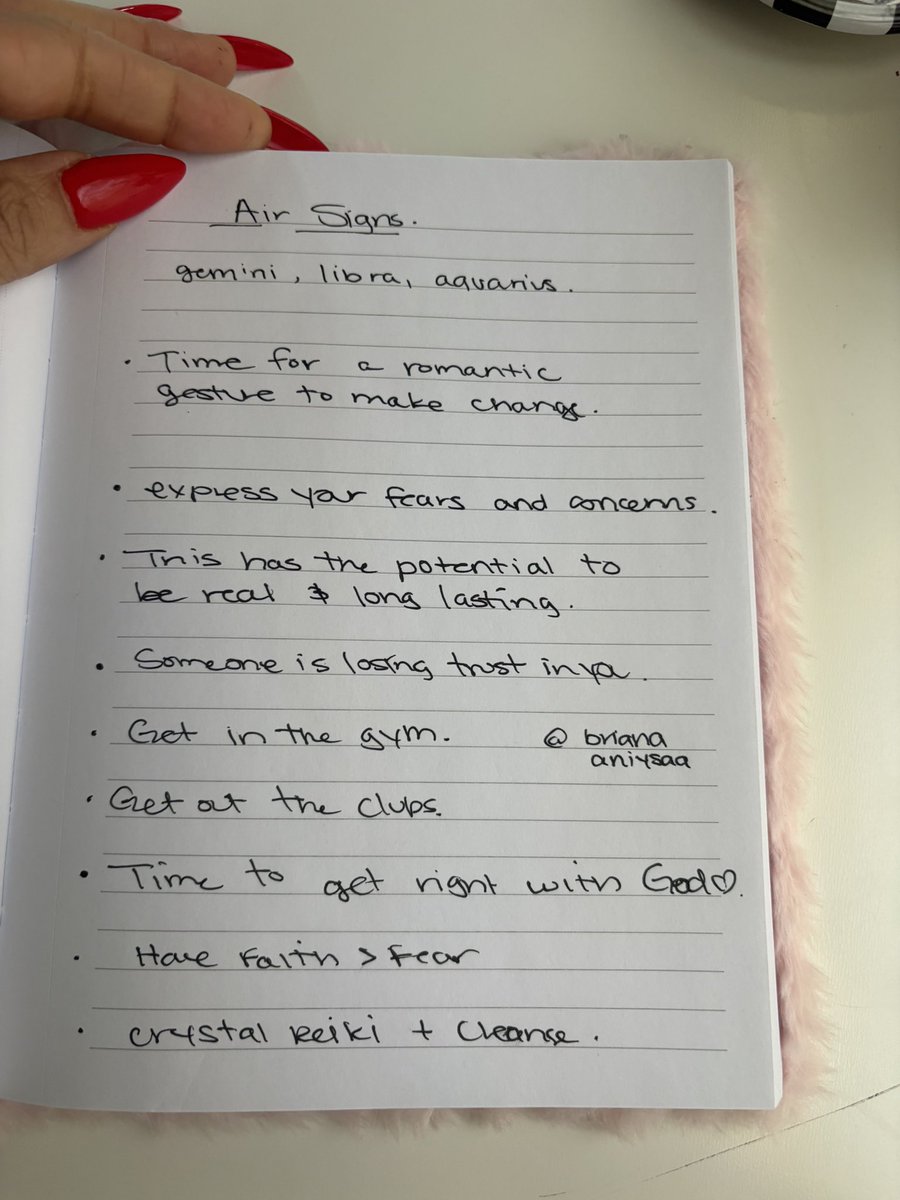 Air Signs.
gemini, libra, aquarius.
• Time for a romantic
gesture to make change.
• express your fears and concerns.
• This has the potential to
be real & long lasting.
• Someone is losing trust in ya.
• Get in the gym.
@ briana
aniysaa
• Get out the clubs.
• Time to get right with God♡.
• Have Faith > Fear
• crystal reiki + cleanse.